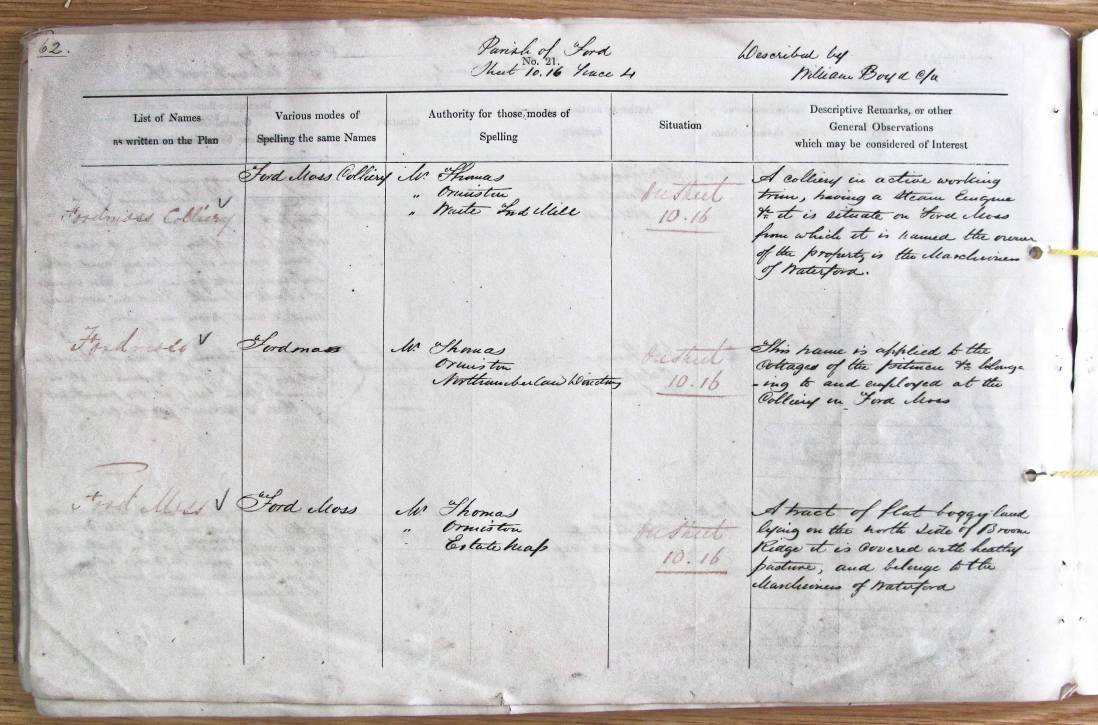 62.
Parish of Ford
No. 21.
Sheet 10.16 Trace 4
Described by
William Boyd c/a
List of Names
as written on the Plan
Various modes of
Spelling the same Names
Authority for those modes of
Spelling
Situation
Descriptive Remarks, or other
General Observations
which may be considered of Interest
Fordmoss Colliery
Ford Moss Colliery
Mr. Thomas
" Ormiston
" Waite Ford Mill
On Sheet
10.16
A colliery in active working
trim, having a Steam Engine
&c it is situate on Ford Moss
from which it is named the owner
of the property is the Marchioness
of Waterford.
Fordmoss
Fordmoss
Mr. Thomas
Ormiston
Northumberland Directory
On Sheet
10.16
This name is applied to the
Cottages of the pitmen &c belong
-ing to and employed at the
Colliery in Ford Moss
Ford Moss
Ford Moss
Mr. Thomas
" Ormiston
Estate Map
On Sheet
10.16
A tract of flat boggy land
lying on the north side of Broom
Ridge it is covered with heathy
pasture, and belongs to the
Marchioness of Waterford